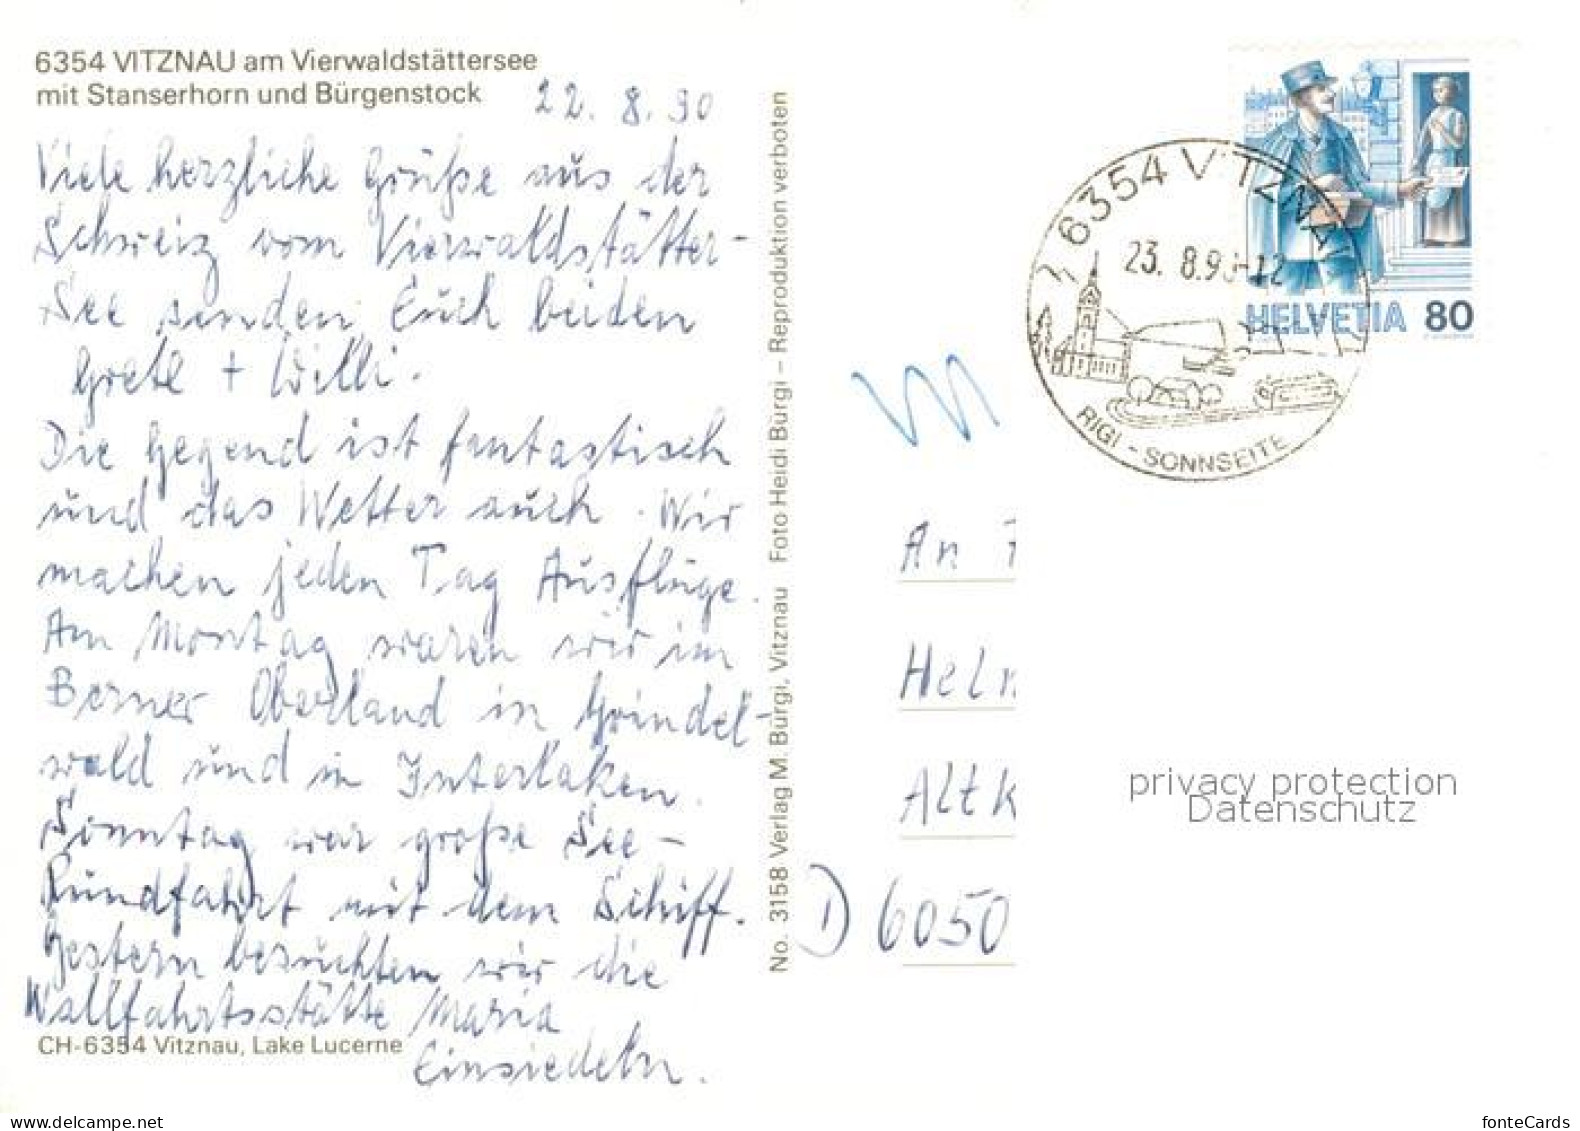 6354 VITZNAU am Vierwaldstättersee
mit Stanserhorn und Bürgenstock
22.8.90
Viele herzliche Grüße aus der
Schweiz vom Vierwaldstätter-
See senden Euch beiden
Gretl + Willi.
Die Gegend ist fantastisch
und das Wetter auch. Wir
machen jeden Tag Ausflüge.
Am Montag waren wir im
Berner Oberland in Grindel-
wald und in Interlaken.
Sonntag war große See-
Rundfahrt mit dem Schiff.
Gestern besuchten wir die
Wallfahrtsstätte Maria
Einsiedeln.
CH-6354 Vitznau, Lake Lucerne
No. 3158 Verlag M. Bürgi, Vitznau Foto Heidi Bürgi – Reproduktion verboten
6354 VITZNAU
23.8.90-12
RIGI - SONNSEITE
HELVETIA 80
An
Heln
Altk
D 6050
privacy protection
Datenschutz
fonteCards